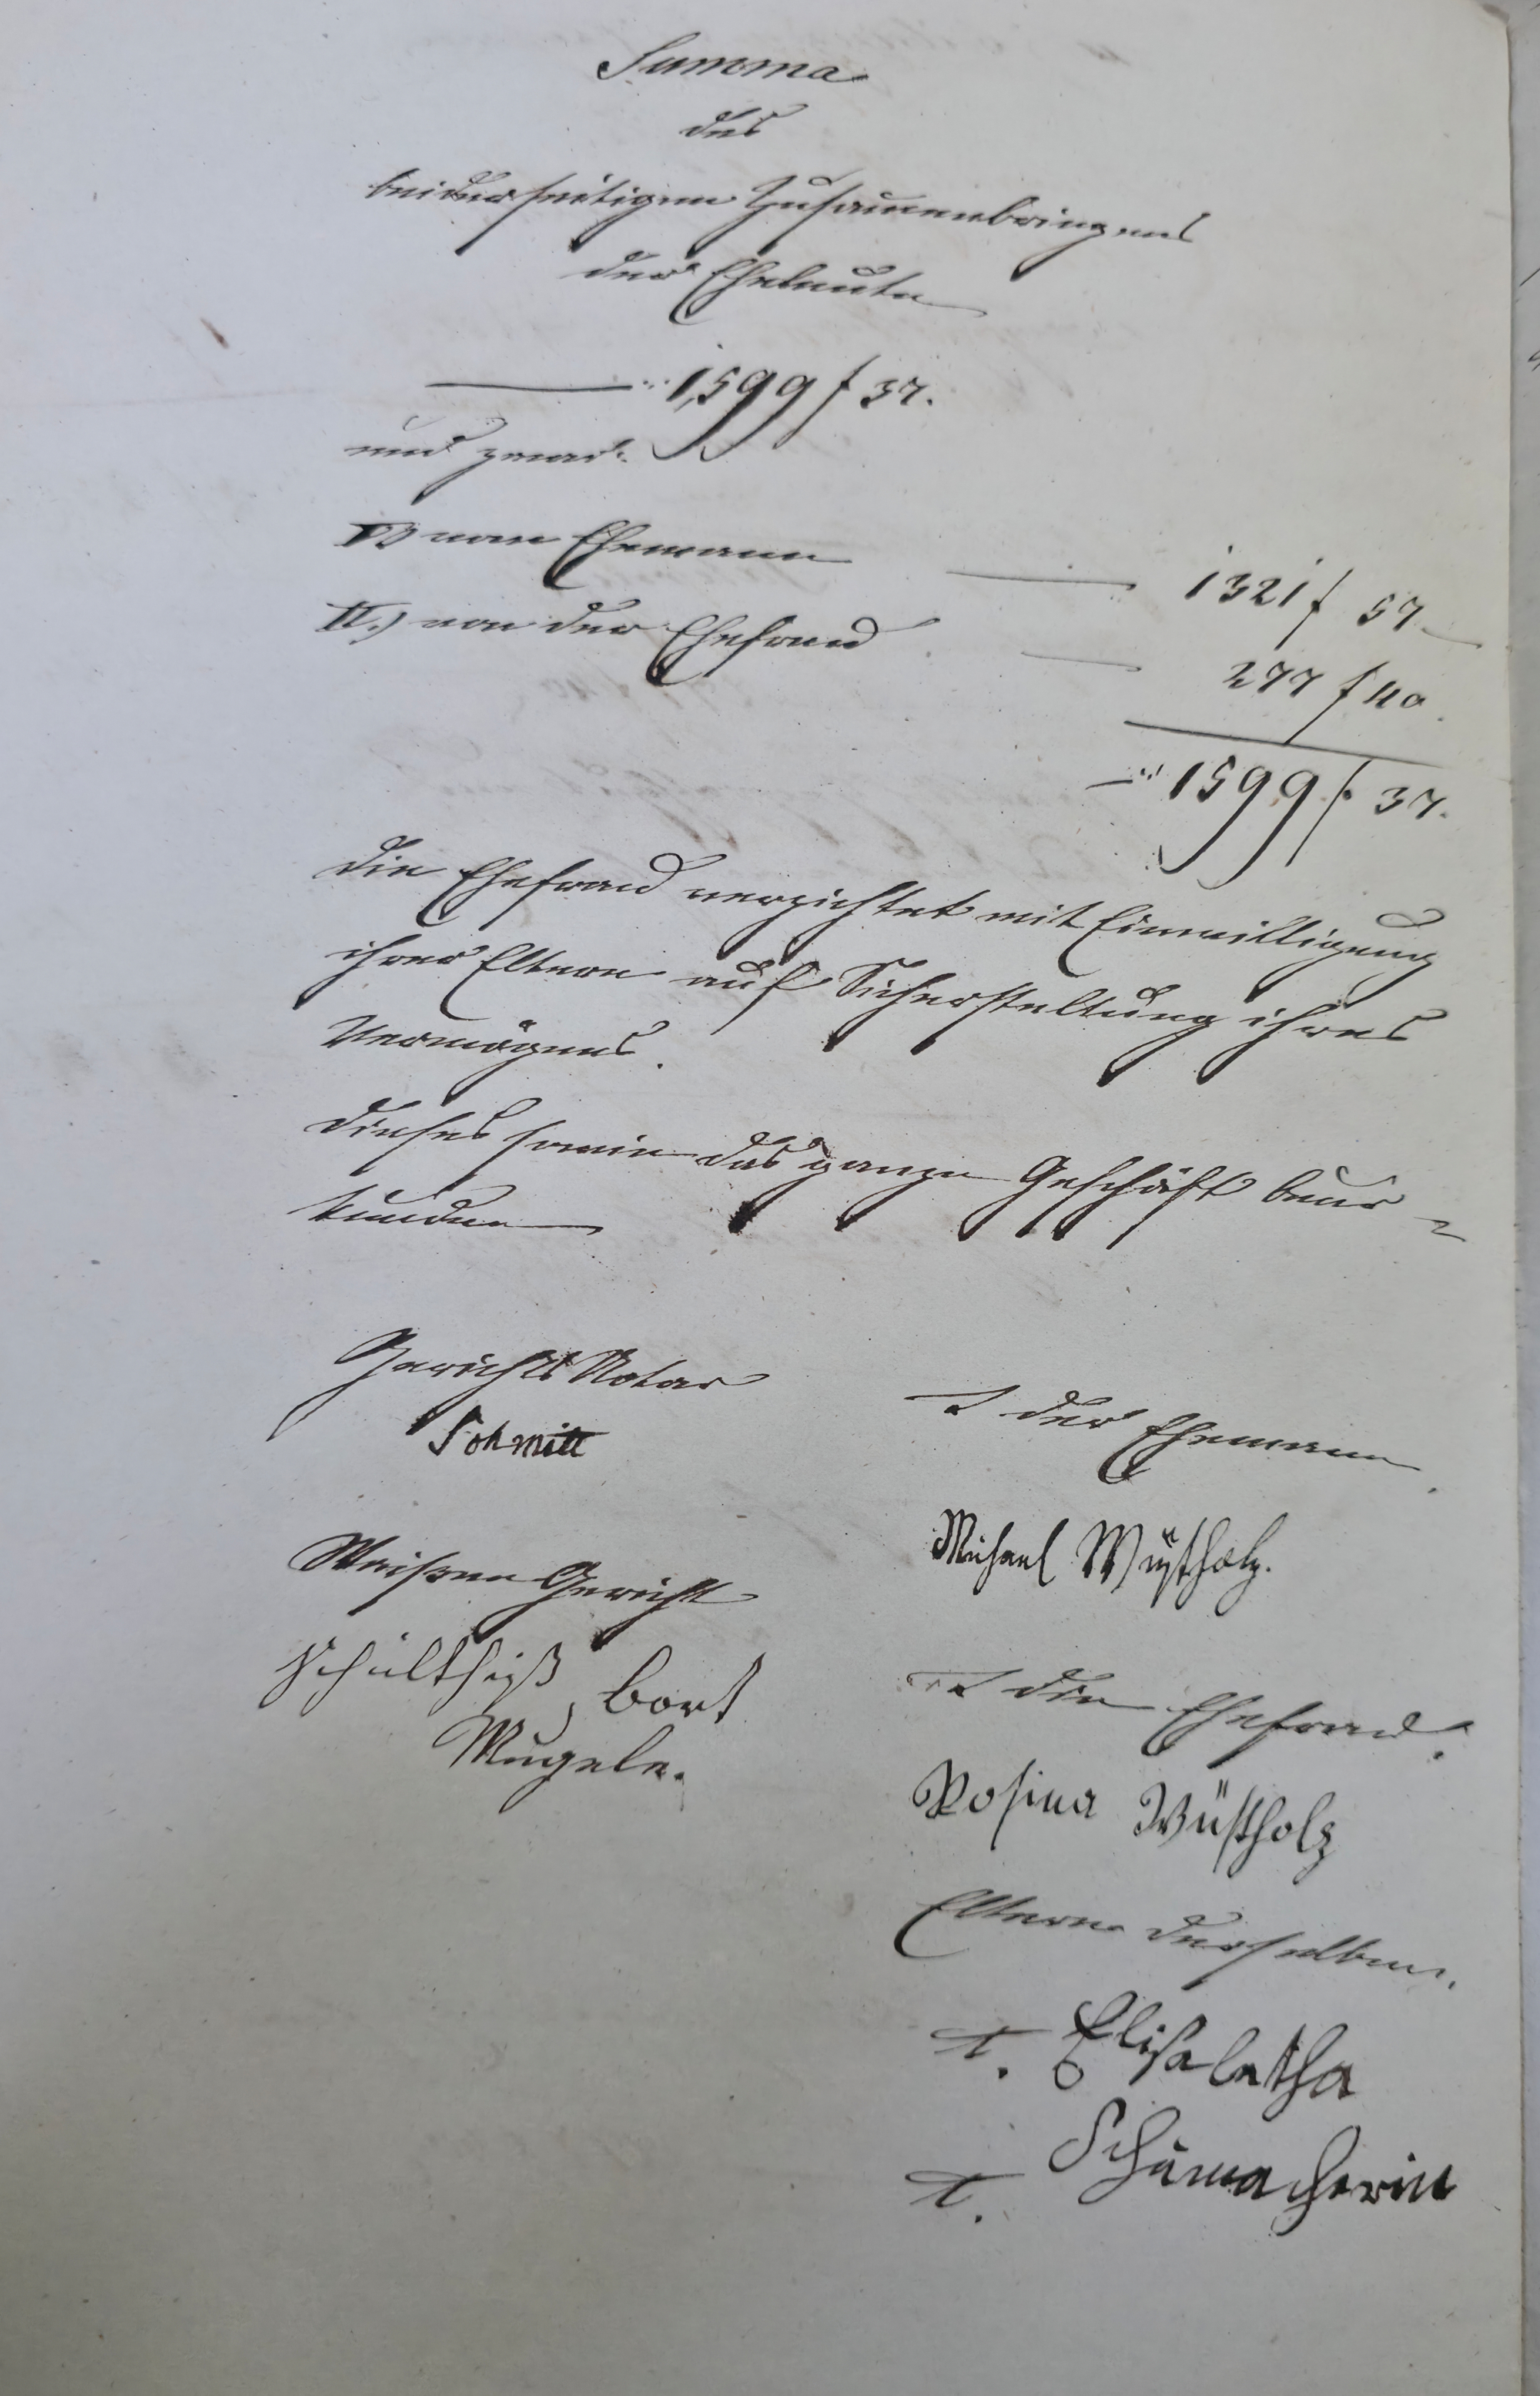 Summa
des
beiderseitigen Zusammenbringens
der Eheleute
1,599 f 37.
und zwar:
I.) vom Ehemann 1321 f 57
II.) von der Ehefrau 277 f 40.
1599 f. 37.
Die Ehefrau verzichtet mit Einwilligung
ihrer Eltern auf Sicherstellung ihres
Vermögens.
Dieses sowie das ganze Geschäft beur-
kunden
Gerichts Notar
Schmitt
Waisen Gericht
Schultheiß, Bort
Mugele.
t. der Ehemann.
Michael Wüstholz.
t. die Ehefrau.
Rosina Wüstholz
Eltern derselben.
t. Elisabetha
t. Schumacherin